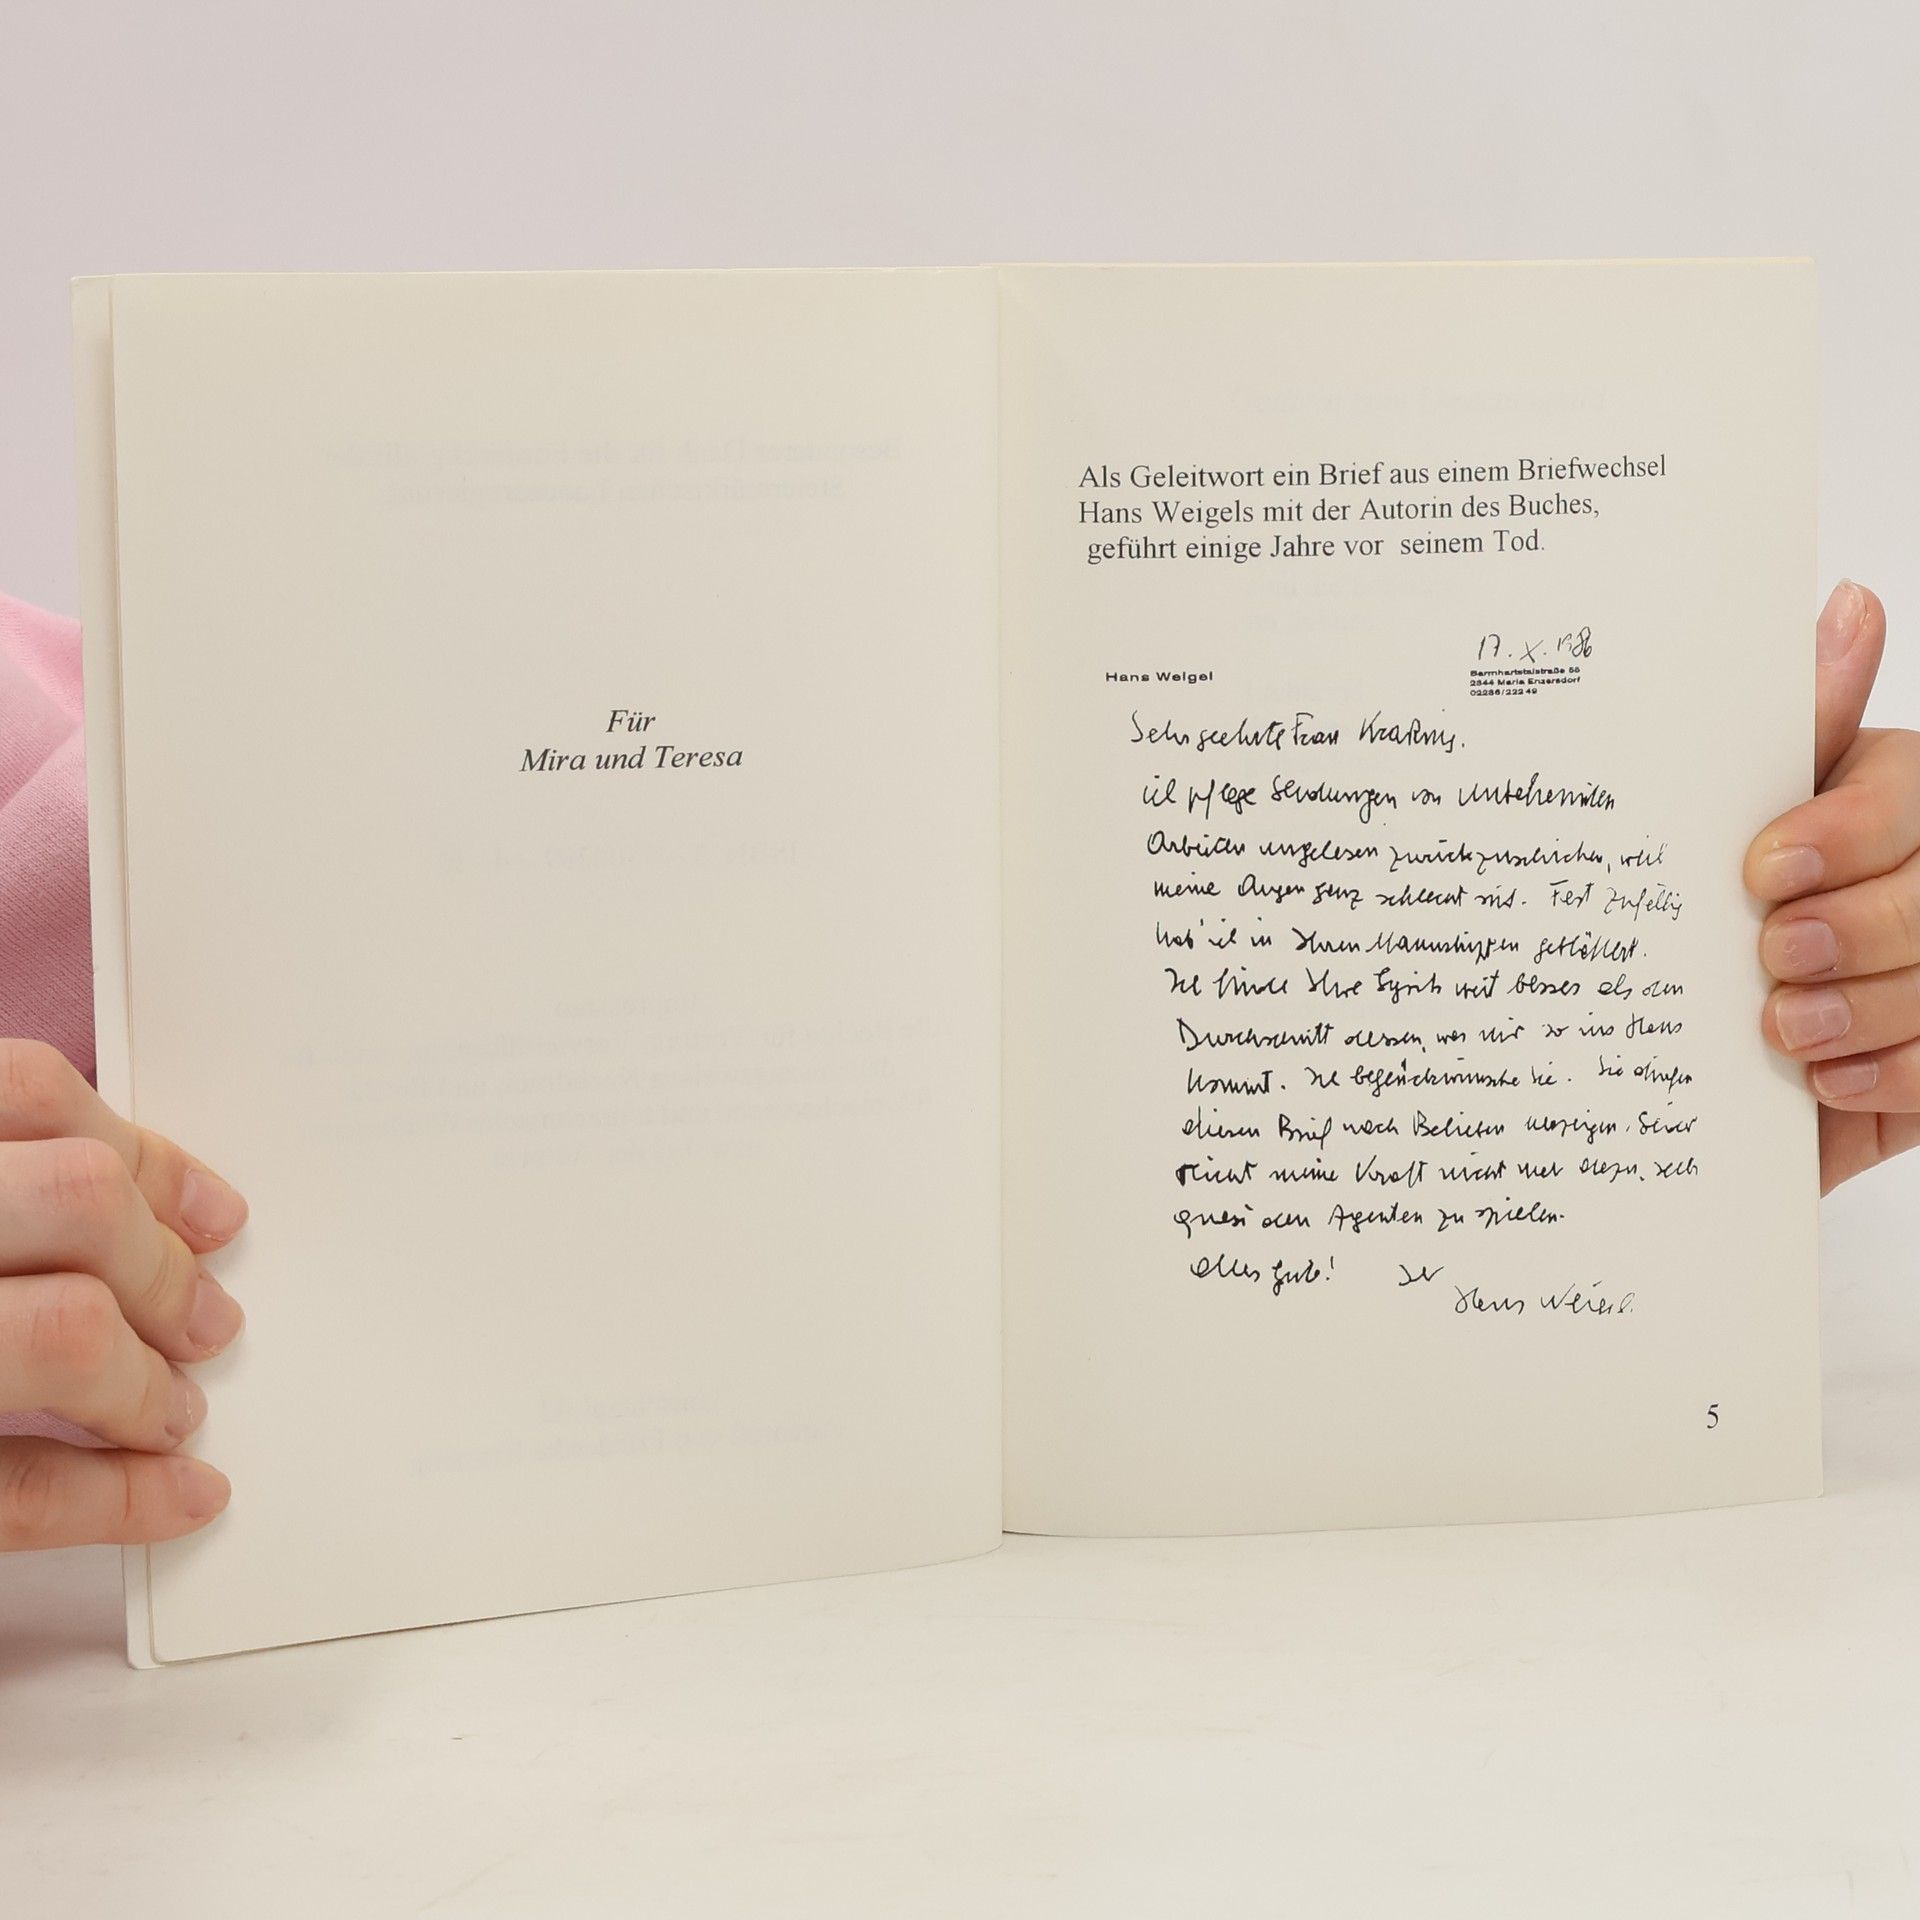 Für
Mira und Teresa
Als Geleitwort ein Brief aus einem Briefwechsel
Hans Weigels mit der Autorin des Buches,
geführt einige Jahre vor seinem Tod.
17. X. 1986
Hans Weigel
Barmhartstalstraße 55
2344 Maria Enzersdorf
02236/222 49
Sehr geehrte Frau
ich pflege Sendungen von unbekannten
Arbeiten ungelesen zurückzuschicken, weil
meine Augen ganz schlecht sind. Fast zufällig
hab' ich in Ihren Manuskripten geblättert.
Ich finde Ihre Lyrik weit besser als den
Durchschnitt dessen, was mir so ins Haus
kommt. Ich beglückwünsche Sie. Sie dürfen
diesen Brief nach Belieben vorzeigen. Leider
reicht meine Kraft nicht mehr dazu, selbst
quasi den Agenten zu spielen.
Alles Gute! Ihr
Hans Weigel.
5